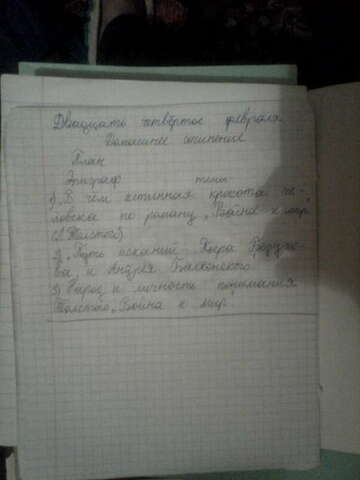 Двадцать четвёртое февраля
Домашнее сочинение
План
Эпиграф темы
1) В чем истинная красота че-
ловека по роману „Война и мир
(Л.Толстой)
2) Путь исканий Пьера Безухо-
ва, и Андрея Болконского
3) Народ и личность понимания
Толстого „Война и мир.